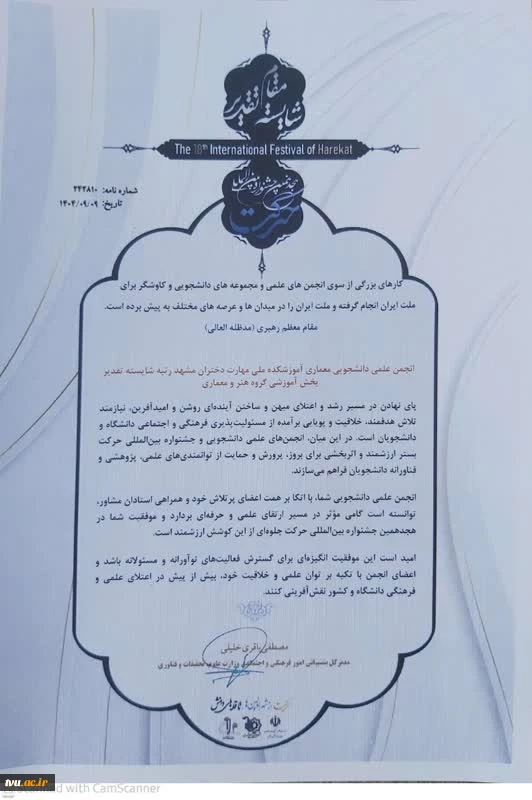 مقام
شایسته تقدیر
The 18th International Festival of Harekat
هجدهمین جشنواره بین‌المللی
حرکت
شماره نامه: ۲۴۲۸۱۰
تاریخ: ۱۴۰۴/۰۹/۰۹
کارهای بزرگی از سوی انجمن های علمی و مجموعه های دانشجویی و کاوشگر برای
ملت ایران انجام گرفته و ملت ایران را در میدان ها و عرصه های مختلف به پیش برده است.
مقام معظم رهبری (مدظله العالی)
انجمن علمی دانشجویی معماری آموزشکده ملی مهارت دختران مشهد رتبه شایسته تقدیر
بخش آموزشی گروه هنر و معماری
پای نهادن در مسیر رشد و اعتلای میهن و ساختن آینده‌ای روشن و امیدآفرین، نیازمند
تلاش هدفمند، خلاقیت و پویایی برآمده از مسئولیت‌پذیری فرهنگی و اجتماعی دانشگاه و
دانشجویان است. در این میان، انجمن‌های علمی دانشجویی و جشنواره بین‌المللی حرکت
بستر ارزشمند و اثربخشی برای بروز، پرورش و حمایت از توانمندی‌های علمی، پژوهشی و
فناورانه دانشجویان فراهم می‌سازند.
انجمن علمی دانشجویی شما، با اتکا بر همت اعضای پرتلاش خود و همراهی استادان مشاور،
توانسته است گامی مؤثر در مسیر ارتقای علمی و حرفه‌ای بردارد و موفقیت شما در
هجدهمین جشنواره بین‌المللی حرکت جلوه‌ای از این کوشش ارزشمند است.
امید است این موفقیت انگیزه‌ای برای گسترش فعالیت‌های نوآورانه و مسئولانه باشد و
اعضای انجمن با تکیه بر توان علمی و خلاقیت خود، بیش از پیش در اعتلای علمی و
فرهنگی دانشگاه و کشور نقش‌آفرینی کنند.
مصطفی باقری خلیلی
مدیرکل پشتیبانی امور فرهنگی و اجتماعی وزارت علوم، تحقیقات و فناوری
tvu.ac.ir
Scanned with CamScanner